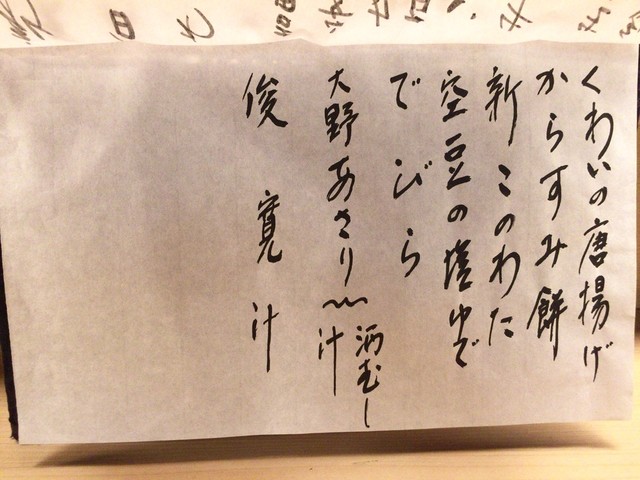 くわいの唐揚げ
からすみ餅
新このわた
空豆の塩ゆで
でびら
大野あさり〰酒むし
汁
俊寛汁